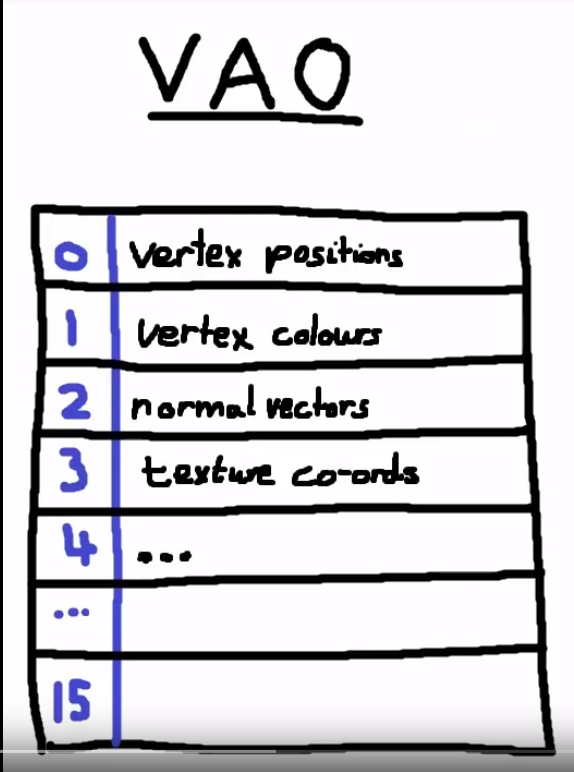 VAO
0 vertex positions
1 vertex colours
2 normal vectors
3 texture co-ords
4 ...
...
15